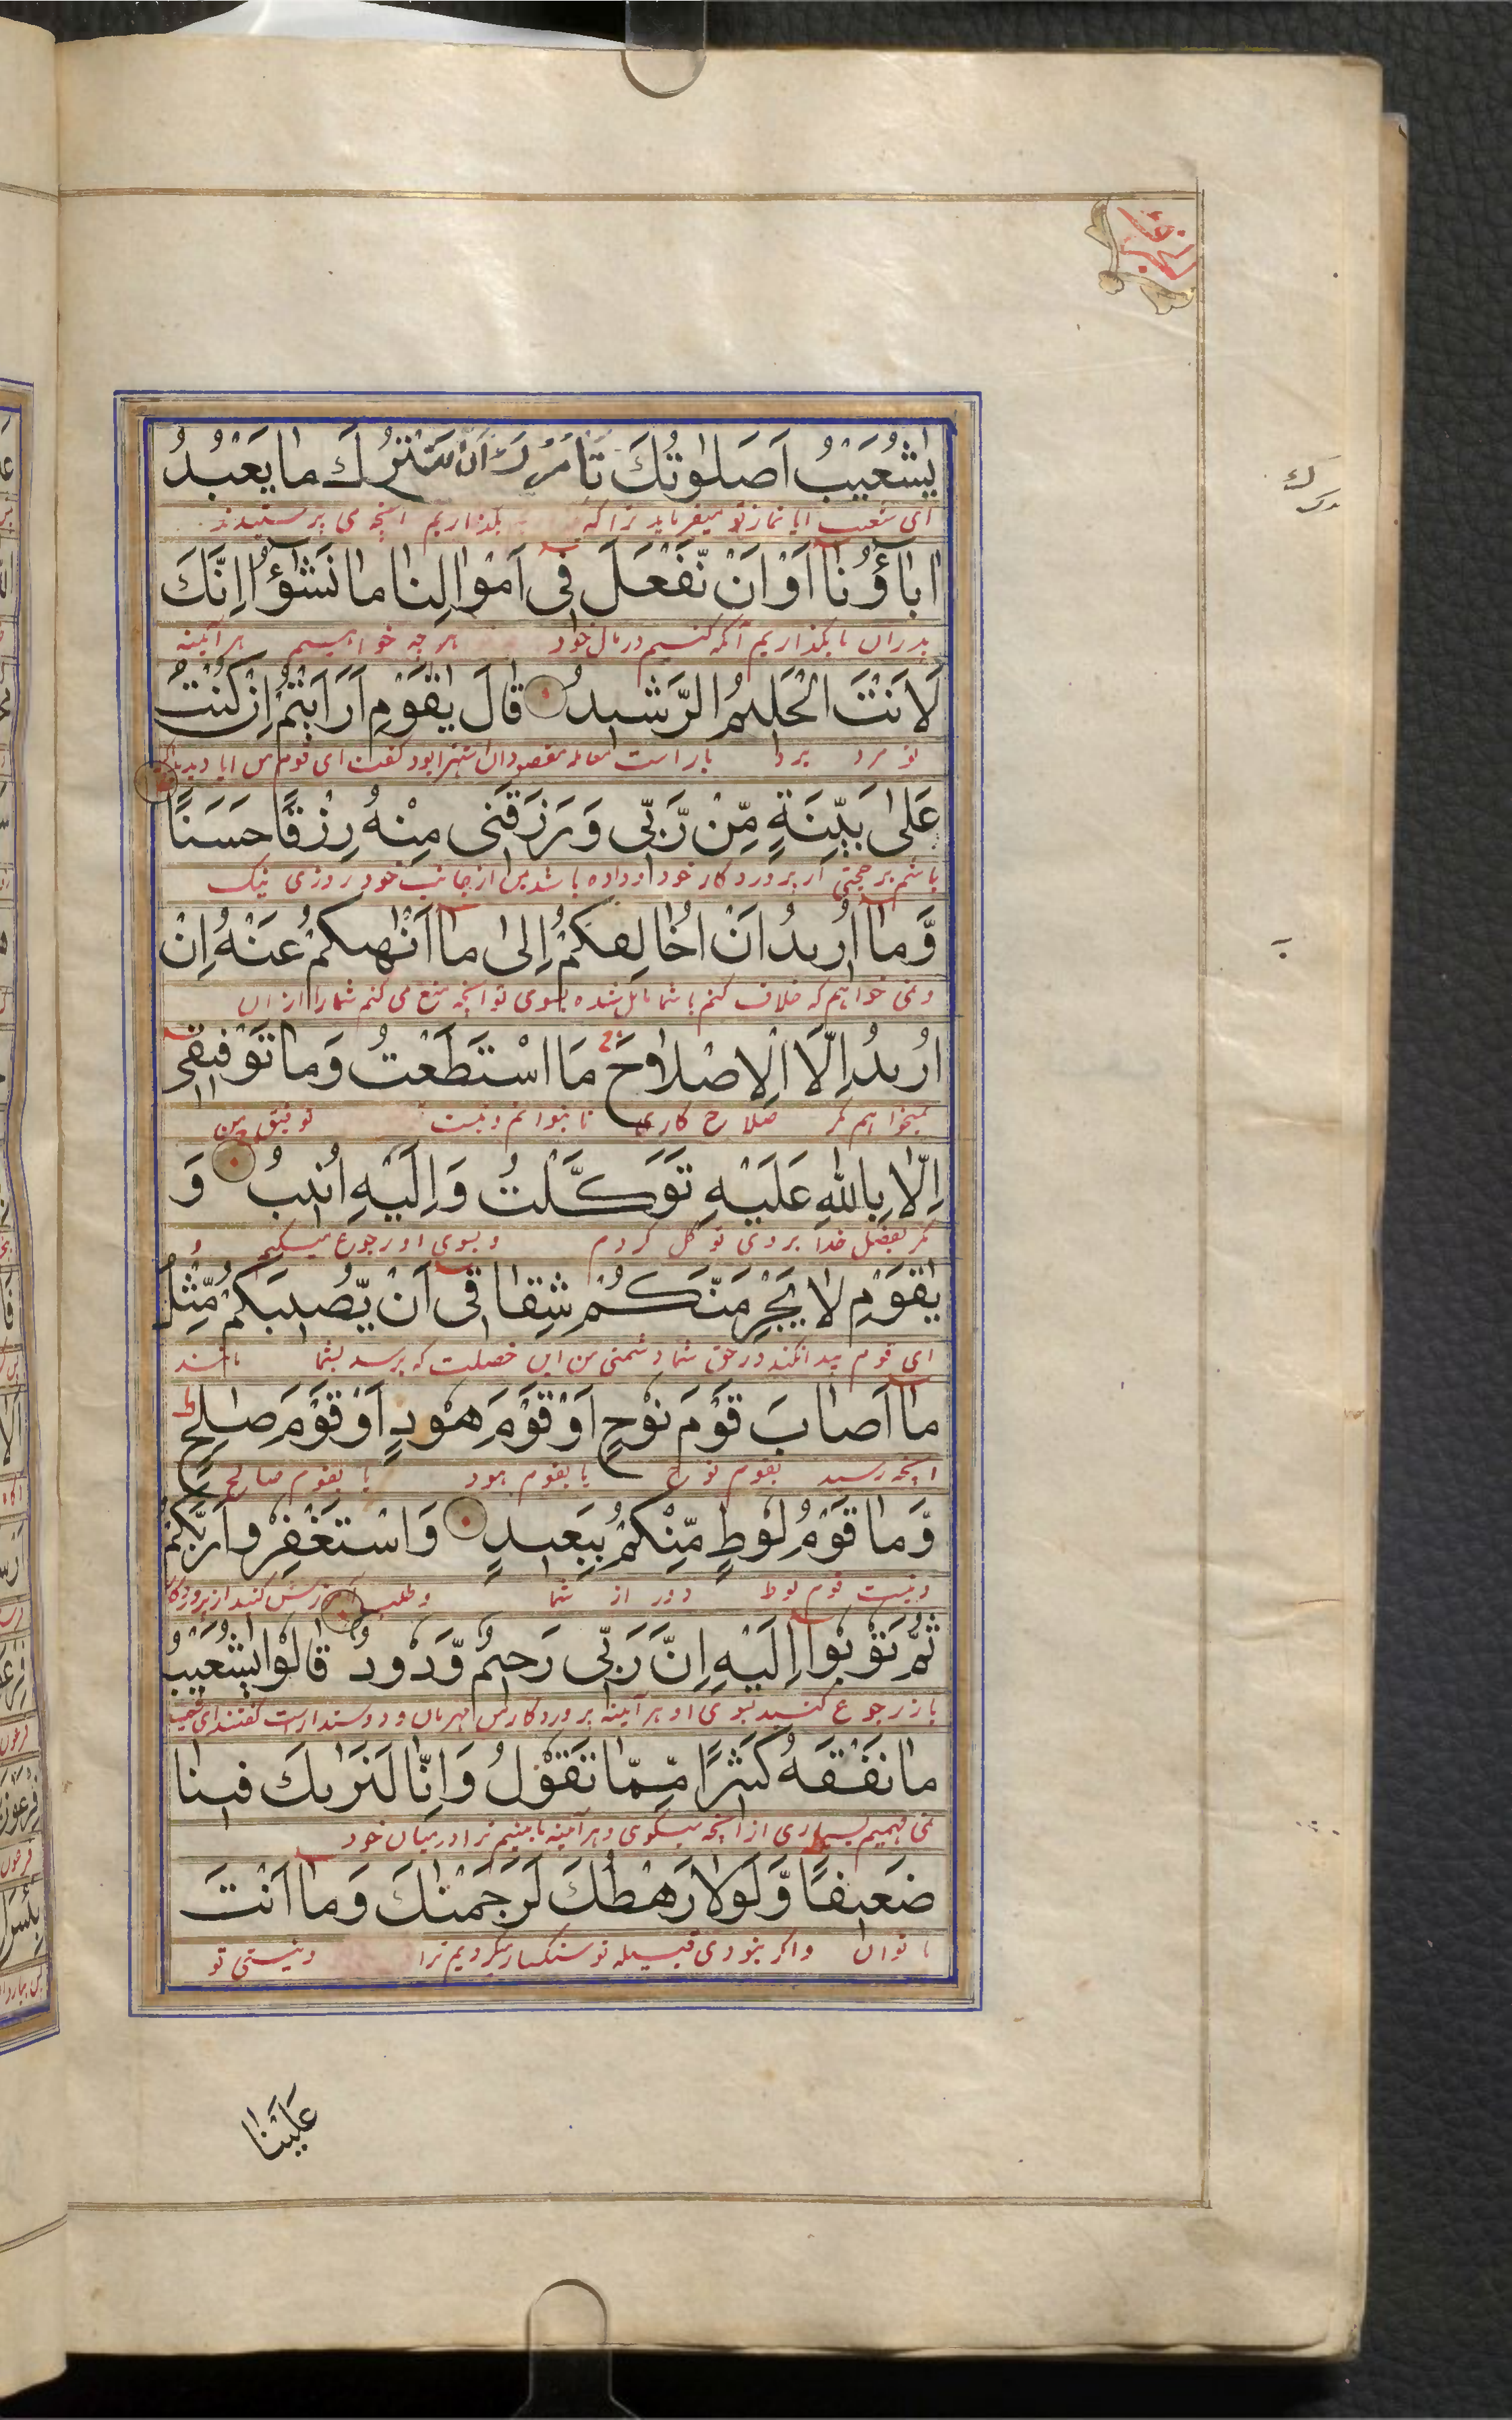 يٰشُعَيْبُ اَصَلٰوتُكَ تَاْمُرُكَ اَنْ نَّتْرُكَ مَا يَعْبُدُ
ای شعیب ایا نماز تو میفرماید ترا که بگذاریم آنچه می پرستیدند
اٰبَآؤُنَآ اَوْ اَنْ نَّفْعَلَ فِیْٓ اَمْوَالِنَا مَا نَشٰٓؤُا اِنَّكَ
پدران ما یا بگذاریم آنکه کنیم در مال خود هر چه خواهیم هر آئینه
لَاَنْتَ الْحَلِيْمُ الرَّشِيْدُ قَالَ يٰقَوْمِ اَرَاَيْتُمْ اِنْ كُنْتُ
تو مرد بردبار راست معامله مقصود ان استهزا بود گفت ای قوم من ایا دیدید که
عَلٰى بَيِّنَةٍ مِّنْ رَّبِّی وَرَزَقَنِی مِنْهُ رِزْقًا حَسَنًا
باشم بر حجتی از پروردگار خود و داده باشد مرا از جانب خود روزی نیک
وَّمَآ اُرِيدُ اَنْ اُخَالِفَكُمْ اِلٰى مَآ اَنْهٰىكُمْ عَنْهُ اِنْ
و نمی خواهم که خلاف کنم با شما مایل شده بسوی انچه منع می کنم شما را از ان
اُرِيدُ اِلَّا الْاِصْلَاحَ مَا اسْتَطَعْتُ وَمَا تَوْفِيقِیْٓ
نمیخواهم مگر صلاح کاری تا بتوانم و نیست توفیق من
اِلَّا بِاللّٰهِ عَلَيْهِ تَوَكَّلْتُ وَاِلَيْهِ اُنِيبُ وَ
مگر بفضل خدا بر وی توکل کردم و بسوی او رجوع میکنم و
يٰقَوْمِ لَا يَجْرِمَنَّكُمْ شِقَاقِیْٓ اَنْ يُّصِيبَكُمْ مِّثْلُ
ای قوم پیدا نکند در حق شما دشمنی من این خصلت که برسد بشما مانند
مَآ اَصَابَ قَوْمَ نُوْحٍ اَوْ قَوْمَ هُوْدٍ اَوْ قَوْمَ صٰلِحٍ
انچه رسید بقوم نوح یا بقوم هود یا بقوم صالح
وَّمَا قَوْمُ لُوْطٍ مِّنْكُمْ بِبَعِيدٍ وَاسْتَغْفِرُوا رَبَّكُمْ
و نیست قوم لوط دور از شما و طلب آمرزش کنید از پروردگار
ثُمَّ تُوْبُوْٓا اِلَيْهِ اِنَّ رَبِّی رَحِيمٌ وَّدُوْدٌ قَالُوْا يٰشُعَيْبُ
باز رجوع کنید بسوی او هر آئینه پروردگار من مهربان و دوستدارست گفتند ای شعیب
مَا نَفْقَهُ كَثِيرًا مِّمَّا تَقُوْلُ وَاِنَّا لَنَرٰىكَ فِينَا
نمی فهمیم بسیاری از انچه میگوی و هر آئینه ما بینیم ترا در میان خود
ضَعِيفًا وَّلَوْلَا رَهْطُكَ لَرَجَمْنٰكَ وَمَآ اَنْتَ
ناتوان و اگر نبودی قبیله تو سنگسار میکردیم ترا و نیستی تو
عَلَيْنَا